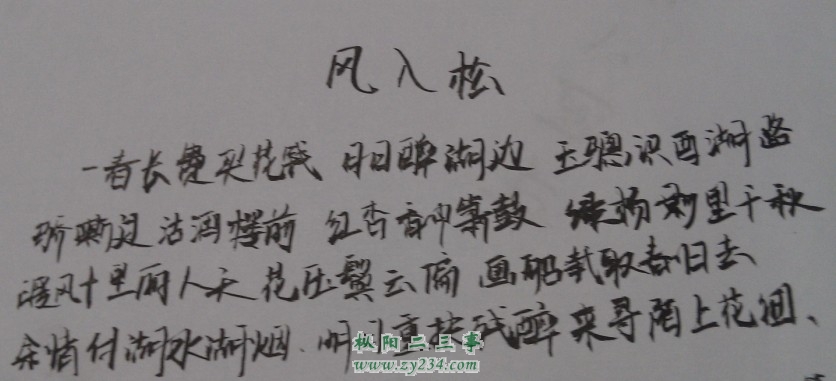 风入松
一春长费买花钱 日日醉湖边 玉骢识西湖路
骄嘶过沽酒楼前 红杏香中箫鼓 绿杨影里千秋
暖风十里丽人天 花压鬓云偏 画船载取春归去
余情付湖水湖烟、明日重扶残醉 来寻陌上花钿、
枞阳二三事
www.zy234.com